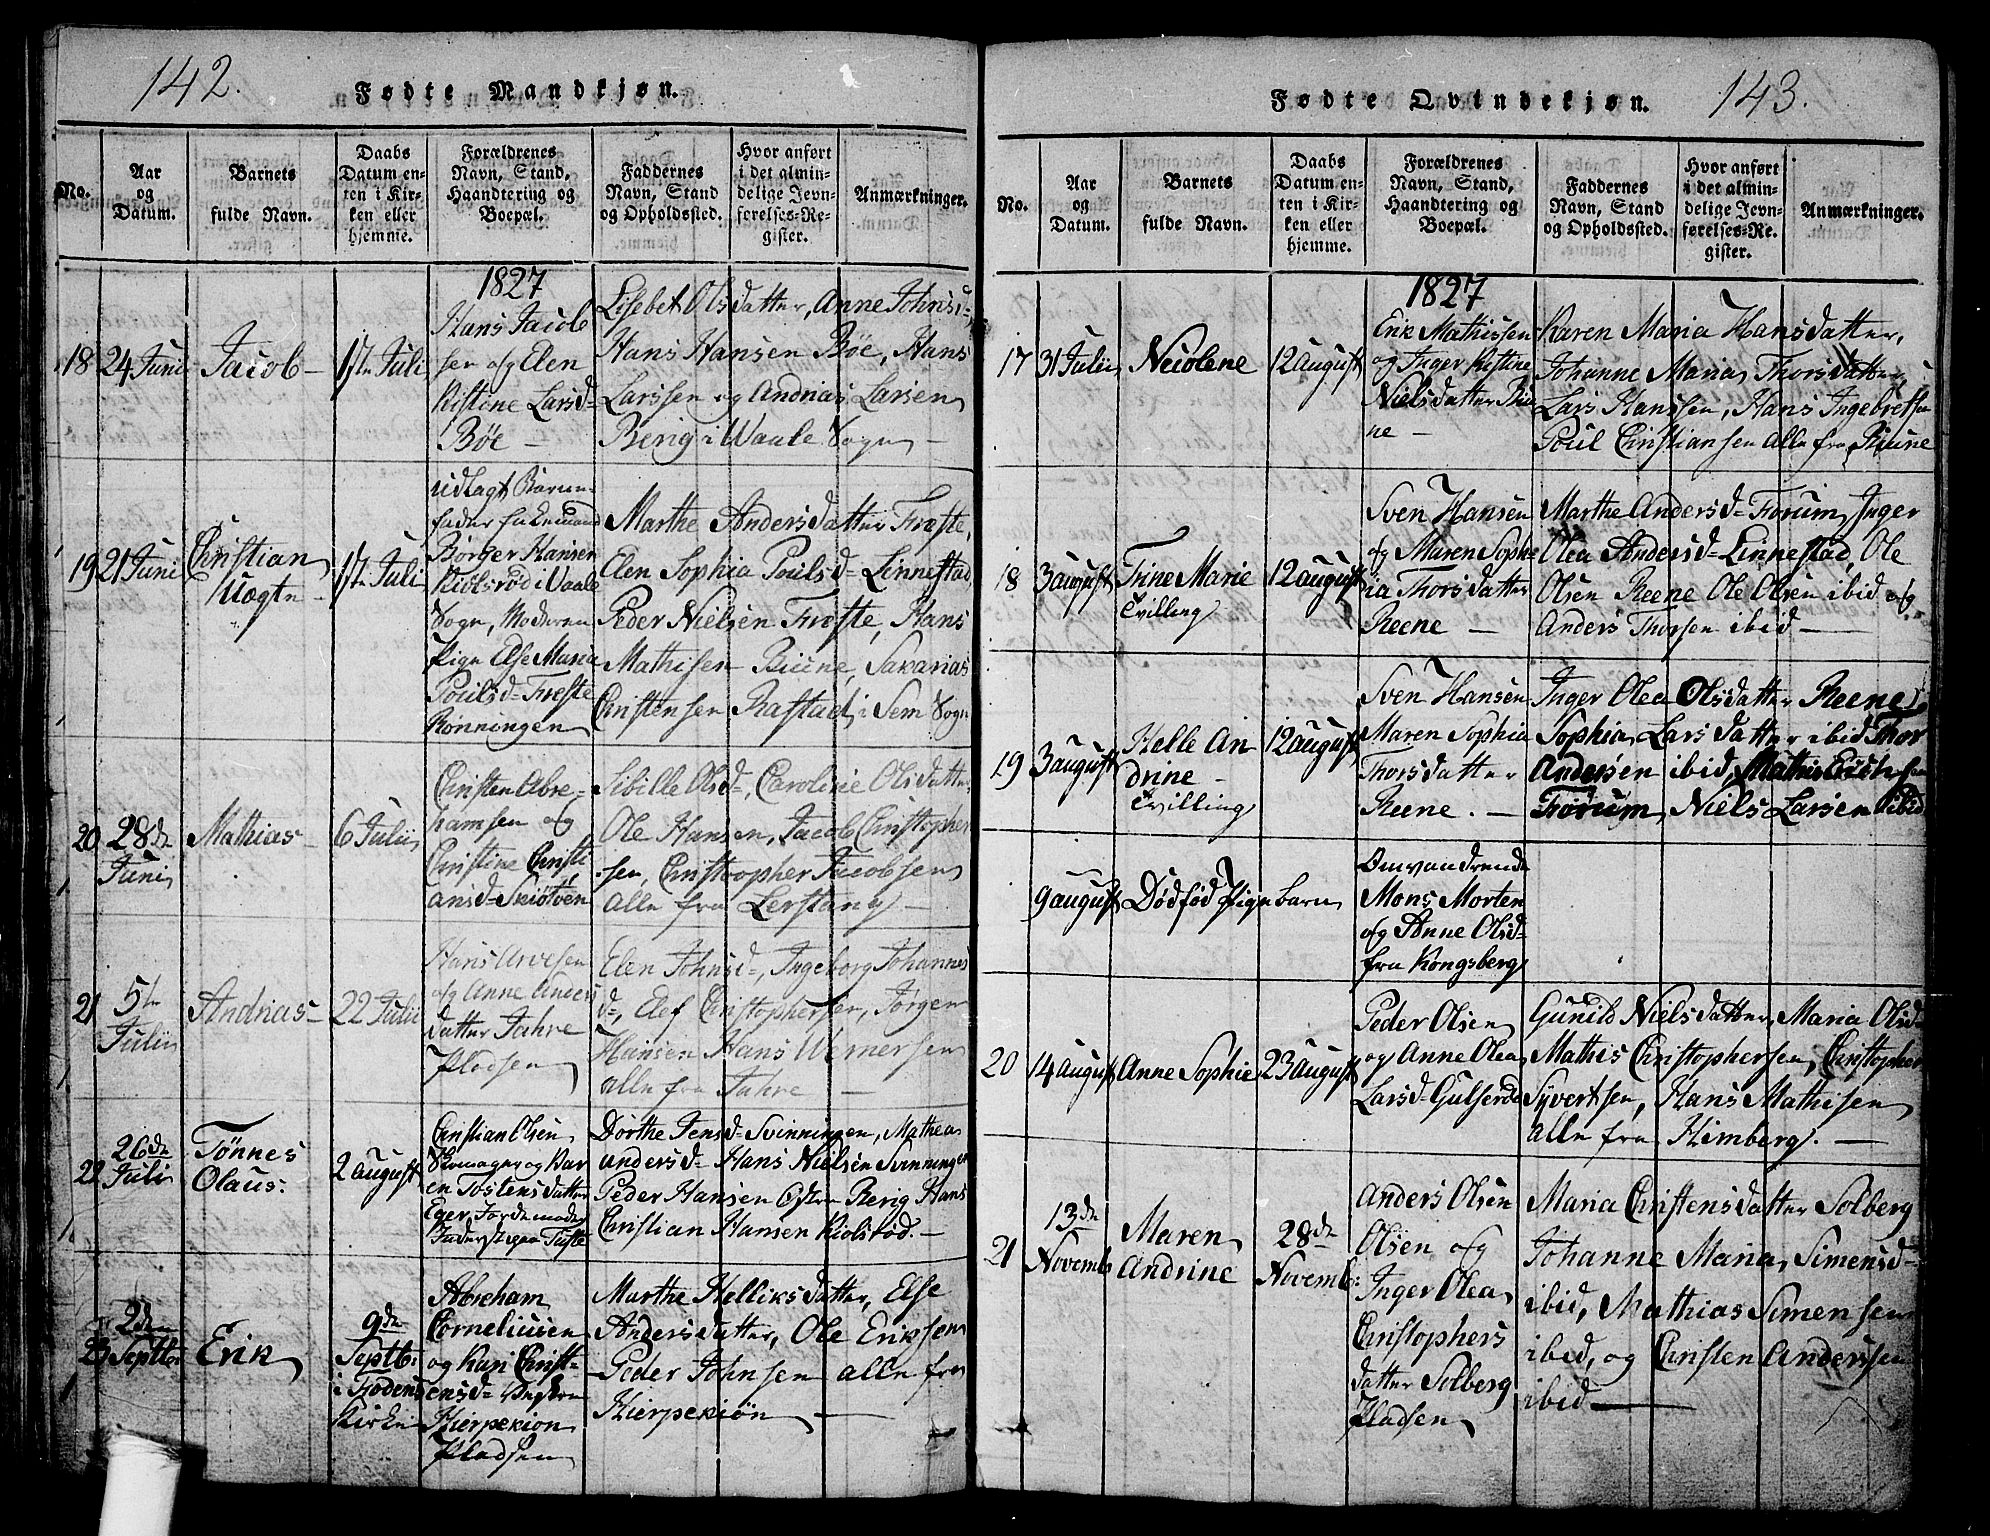 142.
Fødte Mandkjøn.
No.
Aar
og
Datum.
Barnets
fulde Navn.
Daabs
Datum en-
ten i Kir-
ken eller
hjemme.
Forældrenes
Navn, Stand,
Haandtering og
Boepæl.
Faddernes
Navn, Stand
og Opholdssted.
Hvor anført
i det almin-
delige Jevn-
førelses-Re-
gister.
Anmærkninger.
1827
18
24 Juni
Jacob
17de Juli
Hans Jacob
sen og Elen
Kistine Larsd=
Bøe
Lisebet Olsdatter, Anne Johnsd=
Hans Hansen Bøe, Hans
Larssen og Andrias Larsen
Berig i Waale Sogn
19
21 Juni
Christian
17de Juli
udlagt Barne-
fader
Børger Hansen
Kiolsrød i Waale
Sogn, Moderen
Pige Else Maria
Poulsd=
Rønningen
Marthe Andersdatter
Elen Sophia Poulsd= Linnestad
Peder Nielsen
Hans
Mathisen
Sakarias
Christensen Rastad i Sem Sogn
20
28de
Juni
Mathias
6 Julii
Christen Abra-
hamsen og
Christine Christi
ansd=
Sibille Olsd=, Caroline Olsdatter
Ole Hansen, Jacob Christopher
sen, Christopher Jacobsen
alle fra Lerstang
21
5te
Julii
Andrias
22 Julii
Hans
og Anne Anders
datter Jahre
Pladsen
Elen Johnsd=, Ingeborg Johannes
d=, Elef Christophersen, Jørgen
Hansen Hans Wernersen
alle fra Jahre
22
26de
Juli
Tønnes
Olaus.
2 august
Christian Olsen
Skomager og Kar
en Tostensdatter
Eger,
Dorthe Jensd= Svinningen, Mathea
andersd= Hans Nielsen Svinningen
Peder Hansen Østre Berig Hans
Christian Hansen Kiolsrød.
23
2den
Septbr
Erik
9de
Septb:
i
Kirke
Abraham
Corneliusen
og Kari Christ-
ensd=
Hierpekiøn
Pladsen
Marthe Helliksdatter, Else
Andersdatter, Ole Eriksen
Peder Johnsen alle fra
Hierpekiøn
143.
Fødte Qvindekjøn.
No.
Aar
og
Datum.
Barnets
fulde Navn.
Daabs
Datum en-
ten i Kir-
ken eller
hjemme.
Forældrenes
Navn, Stand,
Haandtering og
Boepæl.
Faddernes
Navn, Stand
og Opholdssted.
Hvor anført
i det almin-
delige Jevn-
førelses-Re-
gister.
Anmærkninger.
1827
17
31 Julii
Nicolene
12 august
Erik Mathissen
og Inger Kistine
Nielsdatter
Karen Maria Hansdatter,
Johanne Maria Thorsdatter,
Lars Hanssen, Hans Ingebretsen
Poul Christiansen alle fra
18
3 august
Trine Marie
Tvilling
12 august
Sven Hansen
og Maren Soph
ia Thorsdatter
Reene
Marthe Andersd= Inger
Olea Andersd= Linnestad, Ole
Olsen Reene Ole Olsen ibid og
Anders Thorsen ibid
19
3 august
Helle An
drine
Tvilling
12 august
Sven Hansen
Maren Sophia
Thorsdatter
Reene.
Inger Olea Olsdatter Reene
Sophia Larsdatter ibid Thor
Andersen ibid,
Niels Larsen ibid
9 august
Dødfød Pigebarn
Omvandrende
Mons Morten
og Anne Olsd=
fra Kongsberg
20
14 august
Anne Sophie
23 august
Peder Olsen
og Anne Olea
Larsd=
Gunild Nielsdatter, Maria Olsd=
Mathis Christophersen, Christopher
Syvertsen, Hans Mathisen
alle fra Himberg.
21
13de
Novemb
Maren
Andrine
28de
Novemb:
Anders Olsen
Olsen og
Inger Olea
Christophers
datter Solberg
Pladsen
Maria Christensdatter Solberg
Johanne Maria Simensd=
ibid, Mathias Simensen
ibid, og Christen Anderssen
ibid